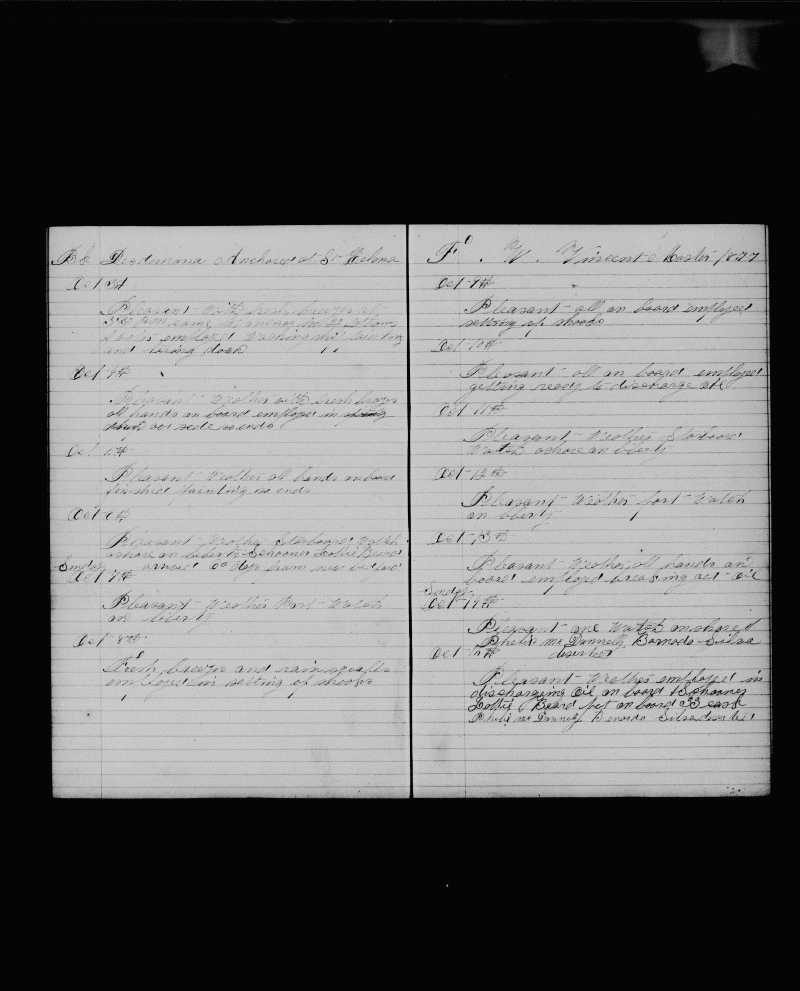 Bk Desdemona Anchored at St Helena
Oct 3d
Pleasant with fresh breezes at
3.30 P.M. came to anchor in
employed
and taring down
Oct 4th
Pleasant Weather with fresh breezes
all hands on board employed in
down our side sends
Oct
Pleasant Weather all hands on board
finished painting
Oct 6th
Pleasant Weather Starboard Watch
ashore on liberty Schooner Lottie Beard
Sunday arived days from new bedford
Oct 7th
Pleasant Weather Port Watch
on liberty
Oct 8th
Fresh breezes and rain squalls
employed in setting up shooks
F. W. Vincent Master 1877
Oct 9th
Pleasant all on board employed
setting up shooks
Oct 10th
Pleasant all on board employed
getting ready to discharge oil
Oct 11th
Pleasant Weather Starboard
Watch ashore on liberty
Oct 12th
Pleasant Weather Port Watch
on liberty
Oct 13th
Pleasant Weather all hands on
board employed breaking out oil
Sunday
Oct 14th
Pleasant one Watch on shore
Phelix mc Donnelly Barnado Silva
deserted
Oct 15th
Pleasant Weather employed in
discharging Oil on board Schooner
Lottie Beard put on board 33 cask
Phelix mc Donnely Bernardo Silva deserted